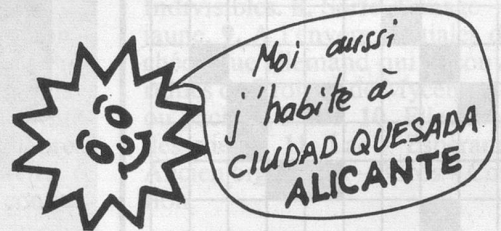 Moi aussi
j'habite à
CIUDAD QUESADA
ALICANTE